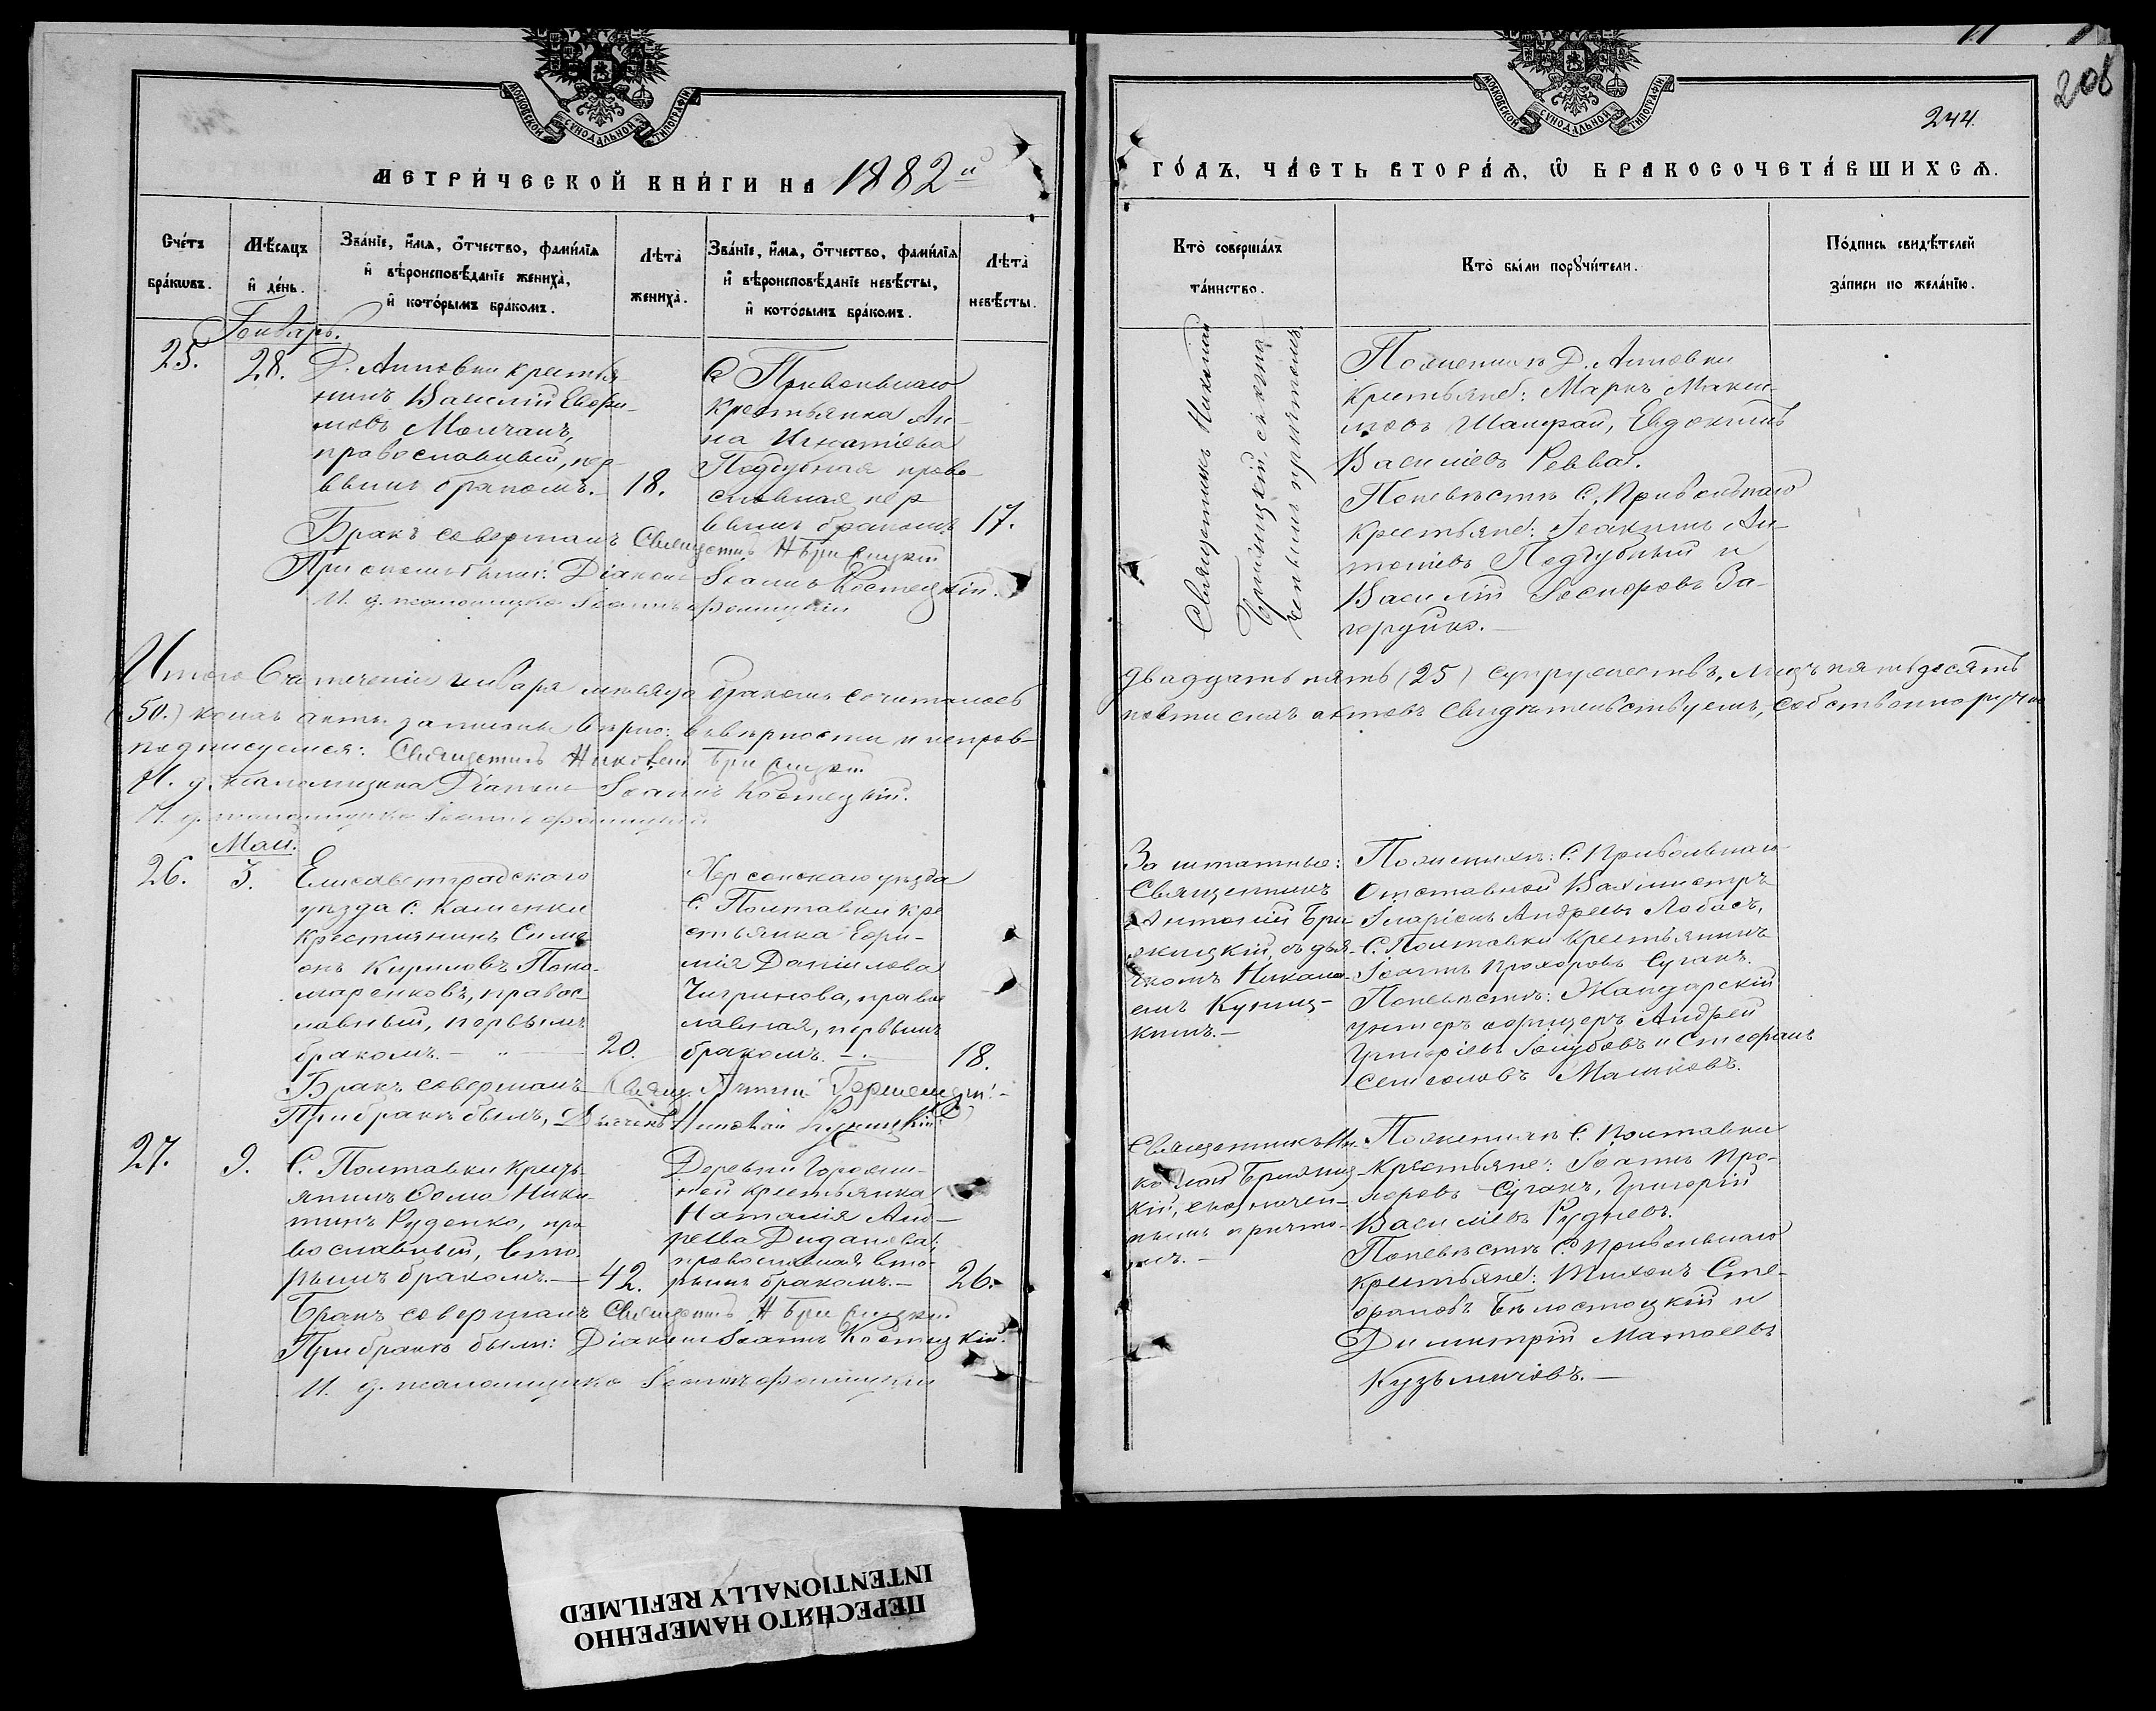 МОСКОВСКОЙ СУНОДАЛЬНОЙ ТИПОГРАФІИ
МЕТРИ́ЧЕСКОЙ КНИ́ГИ НА 1882й
Сче́тъ бра́кѡвъ.
Мѣ́сяцъ и҆ де́нь.
Зва́нїе, и҆́мѧ, ѻ҆́тчество, фами́лїѧ
и҆ вѣроисповѣ́данїе жениха̀,
и҆ кото́рымъ бра́комъ.
Лѣта̀ жениха̀.
Зва́нїе, и҆́мѧ, ѻ҆́тчество, фами́лїѧ
и҆ вѣроисповѣ́данїе невѣ́сты,
и҆ кото́рымъ бра́комъ.
Лѣта̀ невѣ́сты.
Генварь.
25.
28.
Д. Анновки крестья-
нинъ Василій Евфи-
мовъ Молчанъ,
православный, пер-
вымъ бракомъ.
18.
С. Привольнаго
крестьянка Ан-
на Игнатіева
Поддубная право
славная пер
вымъ бракомъ
17.
Бракъ совершалъ Священникъ Н
При семъ были: Діаконъ Іоаннъ Костецкій.
И. д. псаломщика Іоаннъ
Итого въ теченіи января мѣсяца бракомъ сочиталось
(50.) коихъ актъ записанъ вѣрно: въ вѣрности и неправ-
подписуемся: Священникъ Николай
И. д. псаломщика Діаконъ Іоаннъ Костецкій.
И. д. псаломщика Іоаннъ
Май.
26.
3.
Елисаветградскаго
уѣзда С. Каменки
крестьянинъ Симе
онъ Кириловъ Поно-
маренковъ, правос-
лавный, первымъ
бракомъ.
20.
Херсонскаго уѣзда
С. Полтавки кре
стьянка Евфи-
мія Даніилова
Чигринова, правос
лавная, первымъ
бракомъ.
18.
Бракъ совершалъ Свящ.
При бракѣ былъ, Дьячекъ Николай Куницкій
27.
9.
С. Полтавки кресть
янинъ Ѳома Ники-
тинъ Руденко, пра
вославный, вто-
рымъ бракомъ.
42.
Деревни
крестьянка
Наталія Анд-
реева
православная вто-
рымъ бракомъ.
26.
Бракъ совершалъ Священникъ Н
При бракѣ были: Діаконъ Іоаннъ Костецкій.
И. д. псаломщика Іоаннъ
206
244.
МОСКОВСКОЙ СУНОДАЛЬНОЙ ТИПОГРАФІИ
ГО́ДЪ, ЧА́СТЬ ВТОРА́Ѧ, Ѡ҆ БРАКОСОЧЕТА́ВШИХСѦ.
Кто̀ соверша́лъ та́инство.
Кто̀ бы́ли порꙋчи́тели.
По́дпись свидѣ́телей за́писи по жела́нїю.
Священникъ Николай
Поженихѣ Д. Анновки
крестьяне: Маркъ Макси-
мовъ Шалфай, Евдокимъ
Василіевъ Ревва.
Поневѣстѣ С. Привольнаго
крестьяне: Іоакимъ Ан-
тоніевъ Поддубный и
Василій Ѳеодоровъ За-
горуйко.
двадцать пять (25) супружествъ, лицъ пятьдесять
ности сихъ актовъ свидѣтельствуемъ, собственноручно
За штатные:
Священникъ
Антоній
Куниц-
кимъ.
Поженихѣ: С. Привольнаго
Отставной Вахмистръ
Иларіонъ Андреевъ Лобасъ,
С. Полтавки крестьянинъ
Іоаннъ Прохоровъ Суганъ.
Поневѣстѣ: Жандарскій
унтеръ офицеръ Андрей
Григоріевъ Голубовъ и Стефанъ
Семеоновъ Машковъ.
Священникъ Ни-
колай
Поженихѣ С. Полтавки
крестьяне: Іоаннъ Про-
хоровъ Суганъ, Григорій
Василіевъ Рудневъ.
Поневѣстѣ С. Привольнаго
крестьяне: Тихонъ Сте-
фановъ Бѣлостоцкій и
Димитрій Матѳеевъ
Кузьмичовъ.
ПЕРЕСНЯТО НАМЕРЕННО
INTENTIONALLY REFILMED